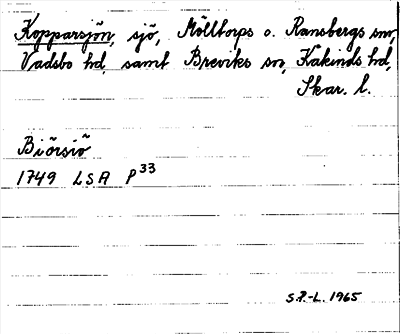 Kopparsjön, sjö, Mölltorps o. Ransbergs snr,
Vadsbo hd, samt Breviks sn, Kåkinds hd,
Skar. l.
Biörsiö
1749 LSA P33
S.P.-L. 1965